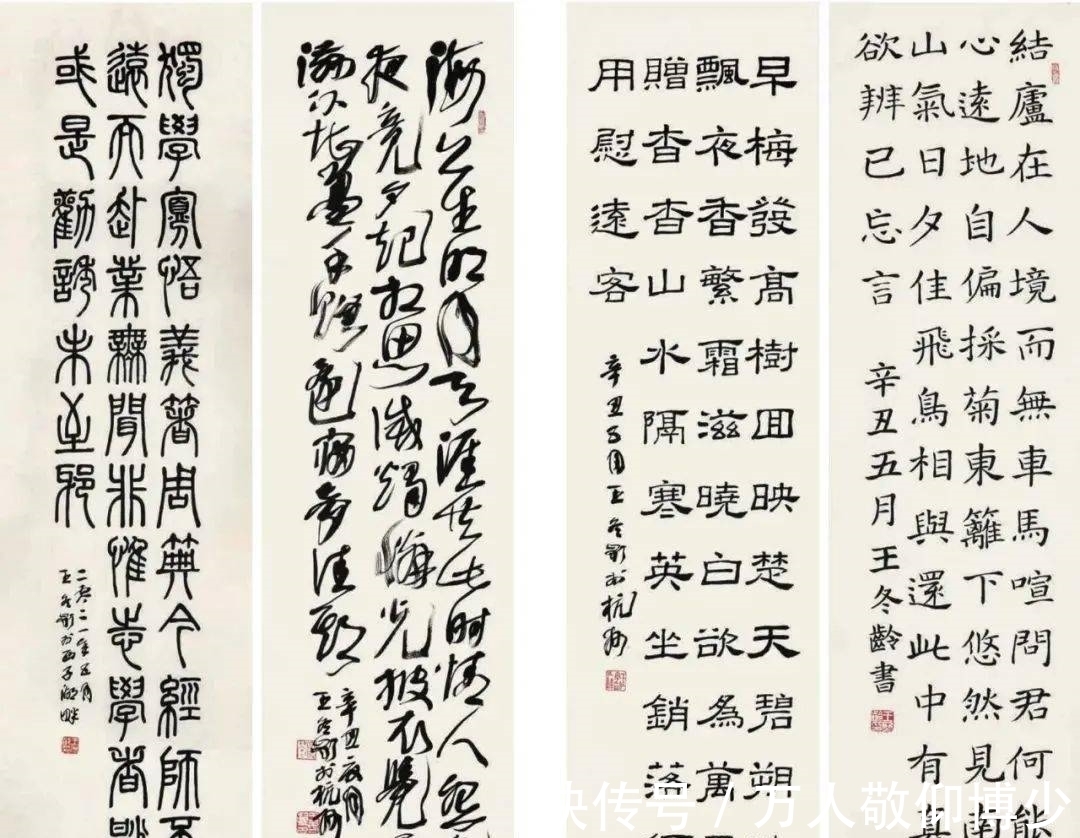 結廬在人境而無車馬喧問君何能
心遠地自偏採菊東籬下悠然見南
山氣日夕佳飛鳥相與還此中有真
欲辨已忘言
辛丑五月王冬齡書
早梅發高樹迥映楚天碧朔
飄夜香繁霜滋曉白欲為萬
贈杳杳山水隔寒英坐銷落
用慰遠客
辛丑 王冬齡於杭州
海上生明月天涯共此時情人怨
夜竟夕起相思滅燭憐光披衣覺
滋不堪盈手贈還寢夢佳期
辛丑夏月
王冬齡於杭州
獨學寡悟義著周典今經師不
遠而赴業無聞非惟志學者
或是勸誘未至邪
二〇二一年五月
王冬齡於西子湖畔
快传号 / 万人敬仰博少